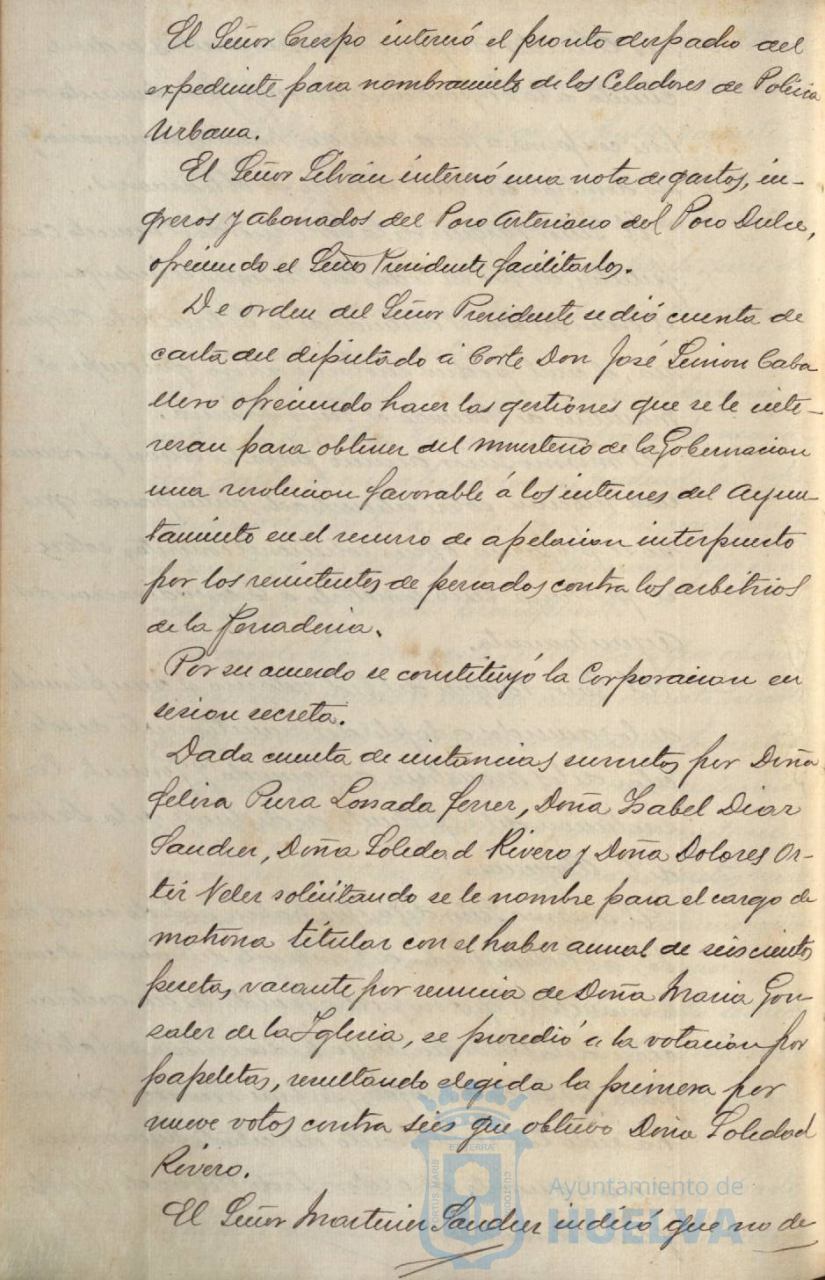 El Señor Crespo interesó el pronto despacho del
expediente para nombramiento de los Celadores de Policia
Urbana.
El Señor Silván interesó una nota de gastos, in-
gresos y abonados del Pozo Artesiano del Pozo Dulce,
ofreciendo el Señor Presidente facilitarlos.
De orden del Señor Presidente se dió cuenta de
carta del diputado á Corte Don José Limon Caba
llero ofreciendo hacer las gestiones que se le inte-
resan para obtener del ministerio de la Gobernacion
una resolucion favorable á los intereses del Ayun-
tamiento en el recurso de apelacion interpuesto
por los remitentes de pescados contra los arbitrios
de la Pescaderia.
Por su acuerdo se constituyó la Corporacion en
sesion secreta.
Dada cuenta de instancias suscritas por Doña
Felisa Pura Lossada Ferrer, Doña Isabel Diaz
Sanchez, Doña Soledad Rivero y Doña Dolores Or-
tiz Velez solicitando se le nombre para el cargo de
matrona titular con el haber anual de seiscientos
pesetas, vacante por renuncia de Doña Maria Gon-
zalez de la Iglesia, se procedió á la votacion por
papeletas, resultando elegida la primera por
nueve votos contra seis que obtuvo Doña Soledad
Rivero.
El Señor Martinez Sanchez indicó que no de
PORTUS MARIS
ET TERRAE
CUSTODIA
Ayuntamiento de
HUELVA